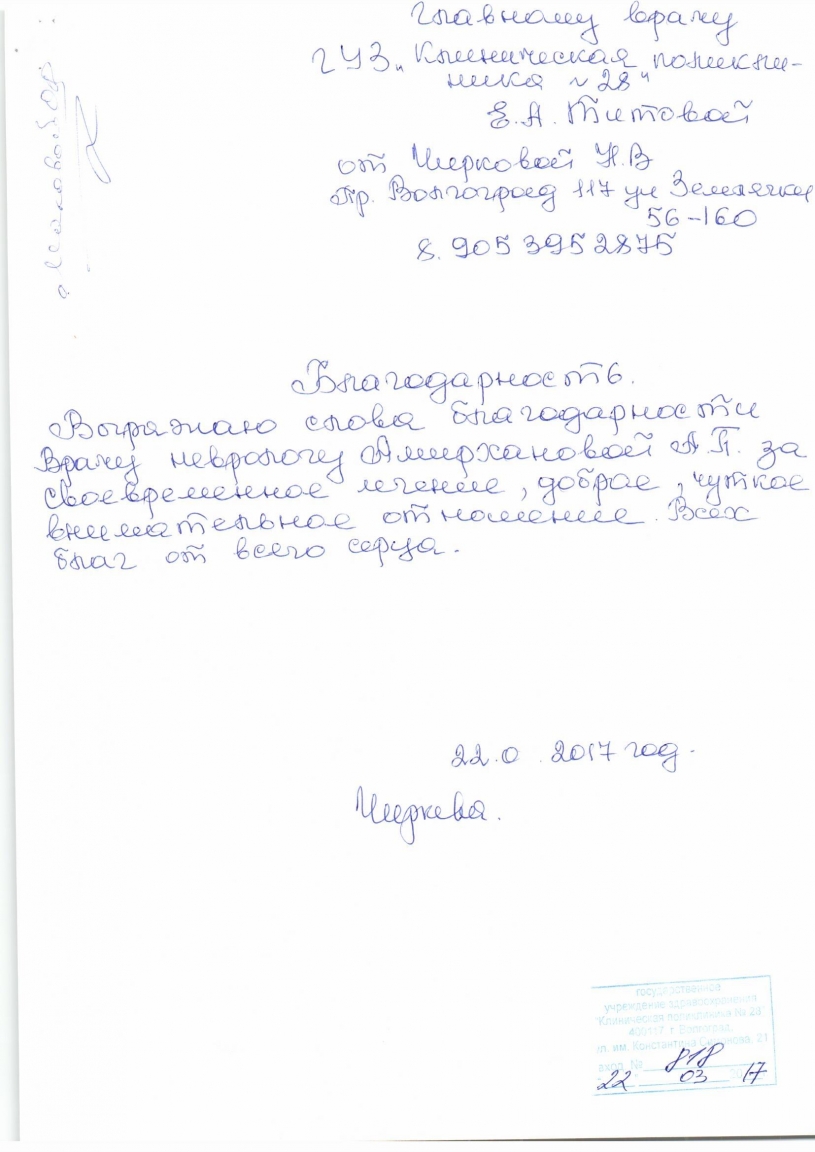 Главному врачу
ГУЗ "Клиническая поликли-
ника № 28"
Е.А. Титовой
от Чирковой Н.В
гр. Волгоград 117 ул Землячки
56-160
8. 905 395 2875
Благодарность.
Выражаю слова благодарности
Врачу неврологу Амирхановой А.П. за
своевременное лечение, доброе, чуткое
внимательное отношение. Всех
благ от всего серца.
22.0 . 2017 год.
государственное
учреждение здравоохранения
"Клиническая поликлиника № 28"
400117 г. Волгоград,
ул. им. Константина Симонова, 21
вход. № 818
22 03 2017